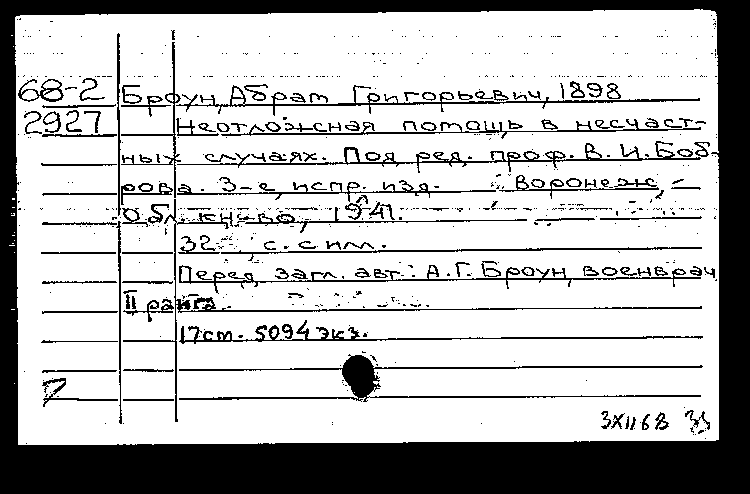 68-2 Броун, Абрам Григорьевич, 1898
2927 Неотложная помощь в несчаст-
ных случаях. Под ред. проф. В. И. Боб-
рова. 3-е, испр. изд. Воронеж, -
Обл. кн-во, 1941.
32 с. с илл.
Перед загл. авт.: А. Г. Броун, военврач
II ранга.
17 ст. 5094 экз.
3XII68